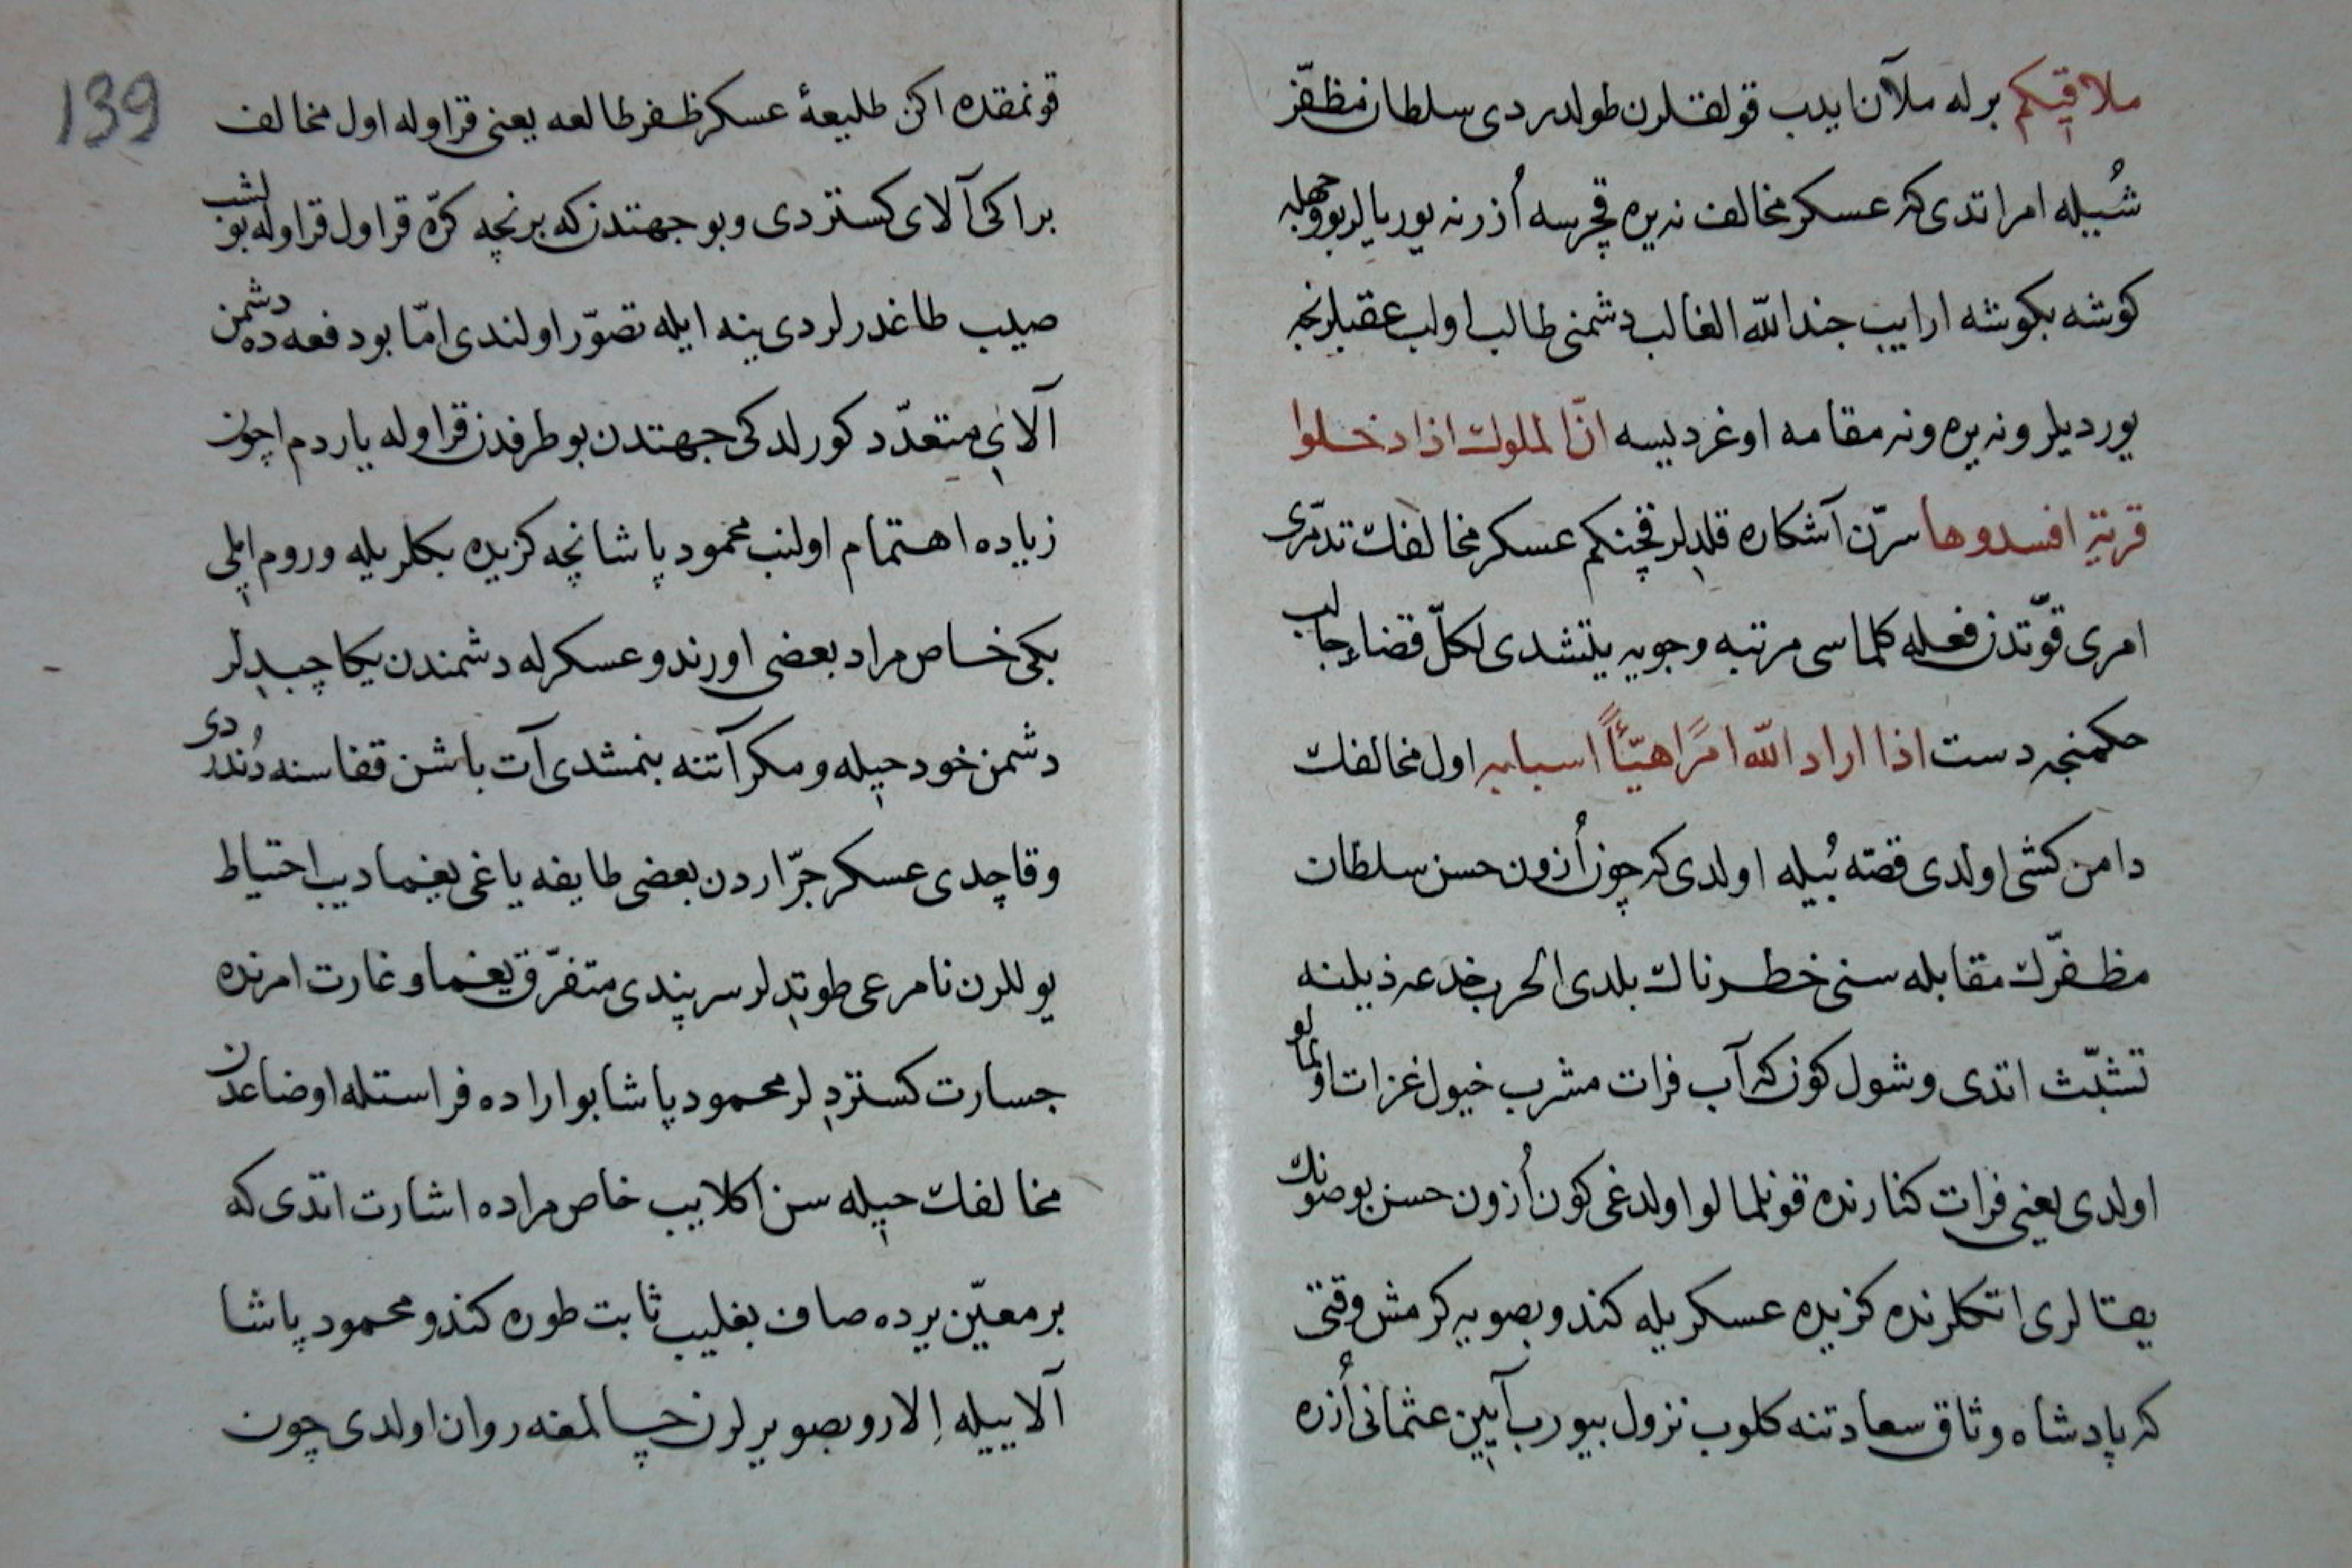 ملاقیکم برله ملآن ایدب قولقلرن طولدردی سلطان مظفّر
شُیله امر اتدی که عسکر مخالف نه یره قچرسه اُزرنه یوریالر بو وجهله
کوشه بکوشه ارایب جند اللّه الغالب دشمنی طالب اولب عقبلرنجه
یوردیلر و نه یره و نه مقامه اوغردیسه انّ الملوك اذا دخلوا
قریة افسدوها سرّن آشکاره قلدلر قچنکم عسکر مخالفك تدمّری
امری قوّتدن فعله کلماسی مرتبه وجوبه یتشدی لکلّ قضاء جالب
حکمنجه دست اذا اراد اللّه امرًا هیّأ اسبابه اول مخالفك
دامن کشی اولدی قصّه بُیله اولدی که چون اُزون حسن سلطان
مظفّرك مقابله سنی خطرناك بلدی الحرب خدعه ذیلنه
تشبّث اتدی و شول کون که آب فرات مشرب خیول غزات اولمالو
اولدی یعنی فرات کنارنده قونلمالو اولدغی کون اُزون حسن بو صونك
یقالری اتکلرنده کزیده عسکریله کندو بصویه کرمش وقتی
که پادشاه وثاق سعادتنه کلوب نزول بیورب آیین عثمانی اُزره
قونمقده اکن طلیعهٔ عسکر ظفر طالعه یعنی قراوله اول مخالف
بر اکی آلای کستردی و بو جهتدن که برنچه کرّه قراول قراوله بولشب
صیلب طاغدرلردی ینه ایله تصوّر اولندی امّا بو دفعه ده دشمن
آلای متعدّد کورلدکی جهتدن بو طرفدن قراوله یاردم اچون
زیاده اهتمام اولنب محمود پاشا نچه کزیده بکلریله و روم ایلی
بکی خاص مراد بعضی اورندو عسکرله دشمندن یکا چپدلر
دشمن خود حیله و مکر آتنه بنمشدی آت باشن قفاسنه دُندردی
و قاچدی عسکر جرّاردن بعضی طایفه یاغی یغما دیب احتیاط
یوللرن نامرعی طوتدلر سر پندی متفرّق یغما و غارت امرنده
جسارت کستردلر محمود پاشا بو اراده فراستله اوضاعدن
مخالفك حیله سن اکلایب خاص مراده اشارت اتدی که
بر معیّن یرده صاف بغلیب ثابت طوره کندو محمود پاشا
آلاییله اِلارو بصو یرلرن چالمغه روان اولدی چون
139